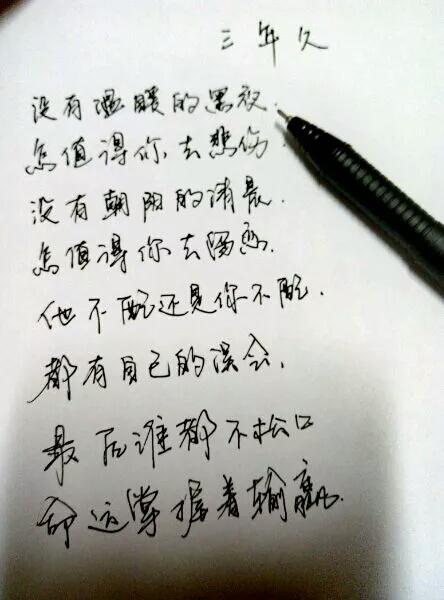 三年久
没有温暖的黑夜.
怎值得你去悲伤.
没有朝阳的清晨.
怎值得你去陶
他不配还是你不配.
都有自己的误会.
最后谁都不松口
命运掌握着输赢.